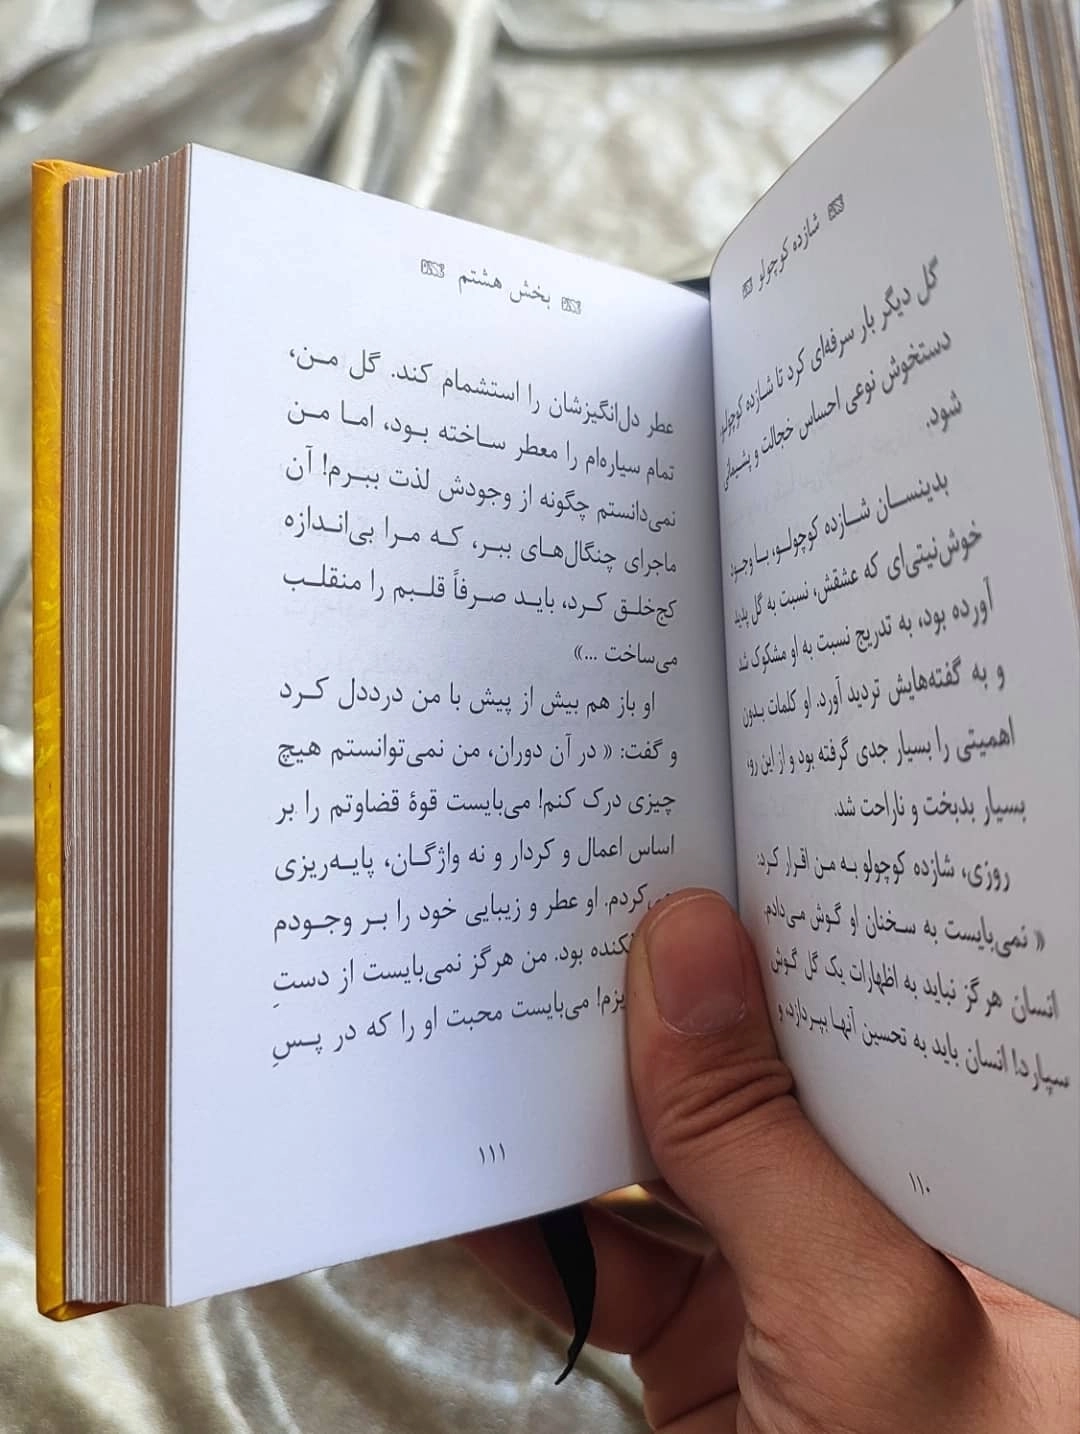 شازده کوچولو
گل دیگر بار سرفه‌ای کرد تا شازده کوچولو،
دستخوش نوعی احساس خجالت و پشیمانی
شود.
بدینسان شازده کوچولو، با وجود
خوش‌نیتی‌ای که عشقش، نسبت به گل پدید
آورده بود، به تدریج نسبت به او مشکوک شد
و به گفته‌هایش تردید آورد. او کلمات بدون
اهمیتی را بسیار جدی گرفته بود و از این رو،
بسیار بدبخت و ناراحت شد.
روزی، شازده کوچولو به من اقرار کرد:
« نمی‌بایست به سخنان او گوش می‌دادم.
انسان هرگز نباید به اظهارات یک گل گوش
سپارد! انسان باید به تحسین آنها بپردازد، و
۱۱۰
بخش هشتم
عطر دل‌انگیزشان را استشمام کند. گل من،
تمام سیاره‌ام را معطر ساخته بود، اما من
نمی‌دانستم چگونه از وجودش لذت ببرم! آن
ماجرای چنگال‌های ببر، که مرا بی‌اندازه
کج‌خلق کرد، باید صرفاً قلبم را منقلب
می‌ساخت ...»
او باز هم بیش از پیش با من درددل کرد
و گفت: « در آن دوران، من نمی‌توانستم هیچ
چیزی درک کنم! می‌بایست قوهٔ قضاوتم را بر
اساس اعمال و کردار و نه واژگان، پایه‌ریزی
می‌کردم. او عطر و زیبایی خود را بر وجودم
بود. من هرگز نمی‌بایست از دستِ
می‌بایست محبت او را که در پسِ
۱۱۱